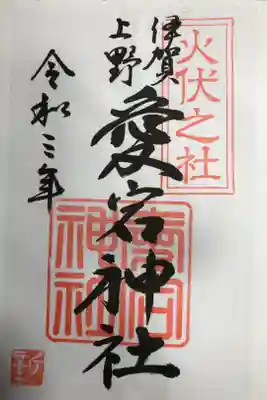 火伏之社
伊賀
上野
愛宕神社
愛宕
神社
令和三年